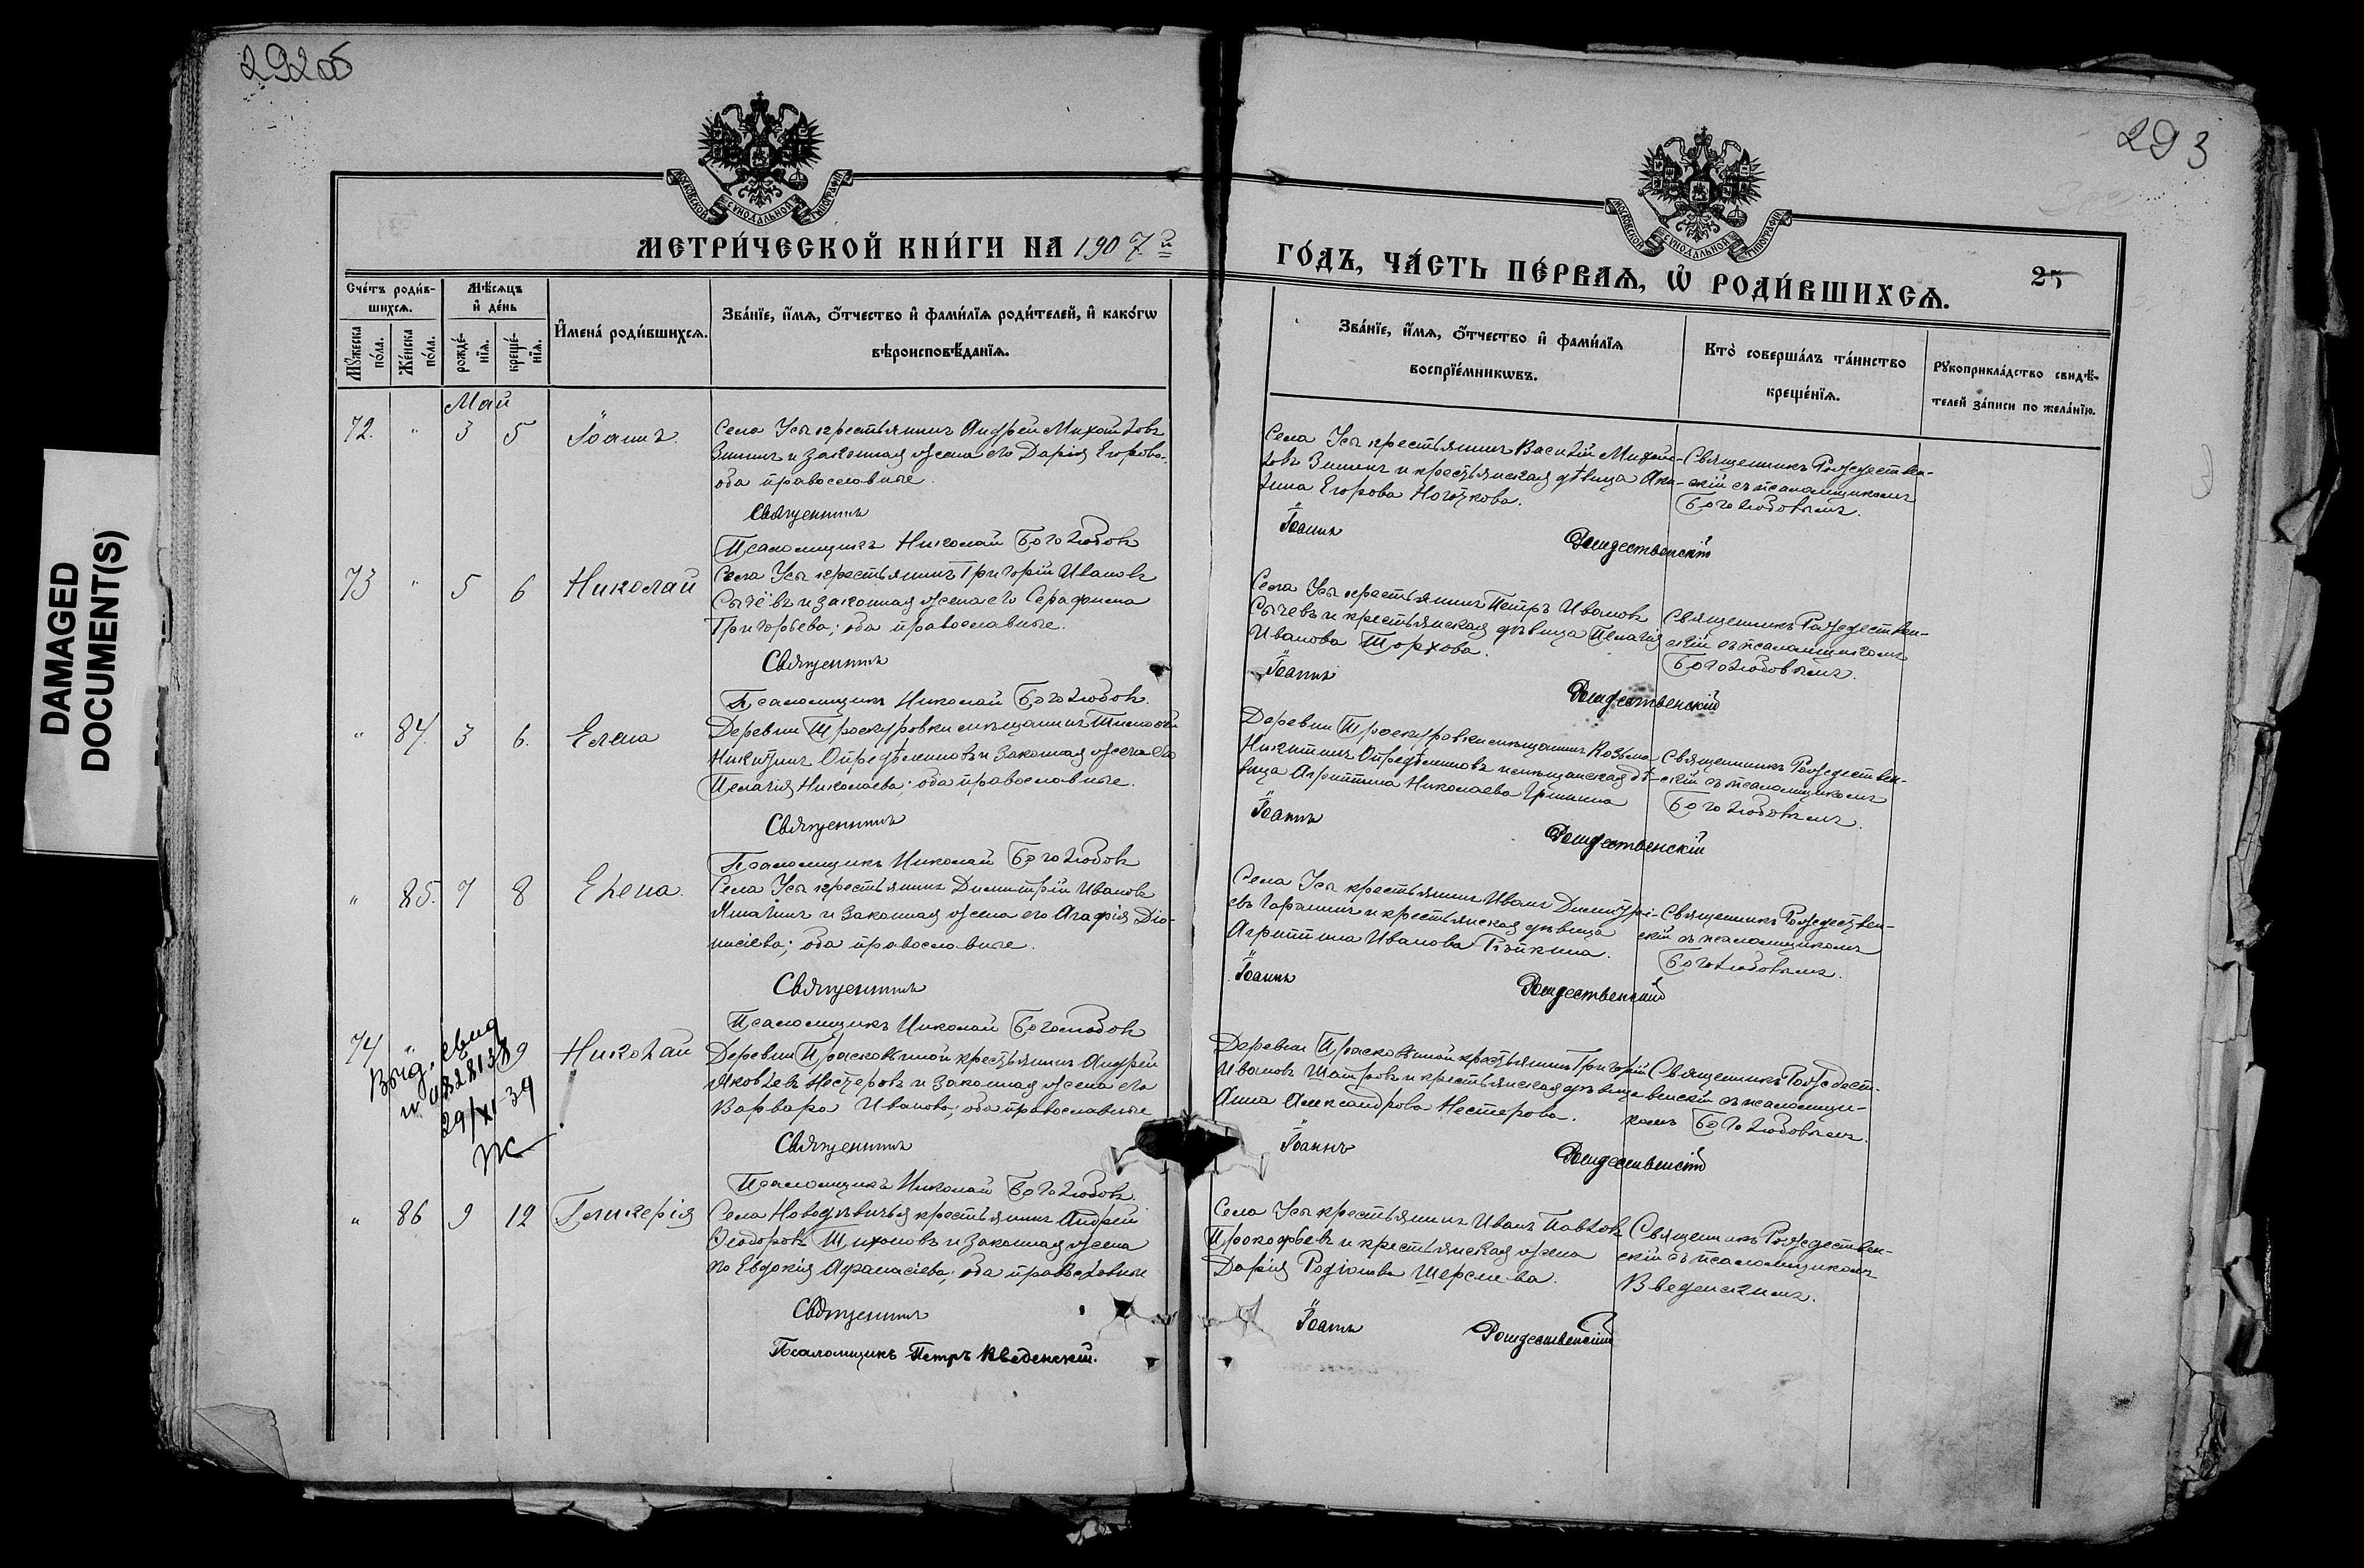 292об
293
DAMAGED
DOCUMENT(S)
МОСКОВСКОЙ СУНОДАЛЬНОЙ ТИПОГРАФІИ
МОСКОВСКОЙ СУНОДАЛЬНОЙ ТИПОГРАФІИ
МЕТРИ́ЧЕСКОЙ КНИ́ГИ НА 1907й
ГО́ДЪ, ЧА́СТЬ ПЕ́РВАѦ, Ѡ҆ РОДИ́ВШИХСѦ.
25
Сче́тъ роди́в-
шихсѧ.
Мꙋ́жеска по́ла.
Же́нска по́ла.
Мѣ́сѧцъ
и҆ де́нь
рожде́-
нїѧ.
креще́-
нїѧ.
И҆мена̀ роди́вшихсѧ.
Зва́нїе, и҆́мѧ, ѻ҆́тчество и҆ фами́лїѧ роди́телей, и҆ како́гѡ
вѣроисповѣ́данїѧ.
Зва́нїе, и҆́мѧ, ѻ҆́тчество и҆ фами́лїѧ
воспрїе́мникѡвъ.
Кто̀ соверша́лъ та́инство
креще́нїѧ.
Рꙋкоприкла́дство свидѣ́-
телей за́писи по жела́нїю.
Май
72. " 3 5 Іоаннъ.
Села Усы крестьянинъ Андрей Михайловъ
Зининъ и законная жена его Дарія Егорова,
оба православные.
Священникъ
Псаломщикъ Николай Боголюбовъ
Села Усы крестьянинъ Василій Михай-
ловъ Зининъ и крестьянская дѣвица Аку-
лина Егорова Ноготкова.
Іоаннъ Рождественскій
Священникъ Рождествен-
скій съ псаломщикомъ
Боголюбовымъ.
73 " 5 6 Николай
Села Усы крестьянинъ Григорій Ивановъ
Сычёвъ и законная жена его Серафима
Григорьева; оба православные.
Священникъ
Псаломщикъ Николай Боголюбовъ.
Села Усы крестьянинъ Петръ Ивановъ
Сычевъ и крестьянская дѣвица Пелагія
Иванова Торхова.
Іоаннъ Рождественскій
Священникъ Рождествен-
скій съ псаломщикомъ
Боголюбовымъ.
" 84. 3 6. Елена
Деревни Проскуровки мѣщанинъ Тимофей
Никитинъ Опредѣленновъ и законная жена его
Пелагія Николаева; оба православные.
Священникъ
Псаломщикъ Николай Боголюбовъ
Деревни Проскуровки мѣщанинъ Козьма
Никитинъ Опредѣленновъ и мѣщанская дѣ-
вица Агриппина Николаева Гришина
Іоаннъ Рождественскій
Священникъ Рождествен-
скій съ псаломщикомъ
Боголюбовымъ.
" 85. 7 8 Елена.
Села Усы крестьянинъ Димитрій Ивановъ
и законная жена его Агафія Діо-
нисіева; оба православные.
Священникъ
Псаломщикъ Николай Боголюбовъ
Села Усы крестьянинъ Иванъ Димитрі-
евъ и крестьянская дѣвица
Агриппина Иванова
Іоаннъ Рождественскій
Священникъ Рождествен-
скій съ псаломщикомъ
Боголюбовымъ.
74 " 8 9 Николай
Выд. свид
29/XI-39
Деревни Прасковьиной крестьянинъ Андрей
Яковлевъ Нестеровъ и законная жена его
Варвара Иванова; оба православные
Священникъ
Псаломщикъ Николай Боголюбовъ.
Деревни Прасковьиной крестьянинъ Григорій
Ивановъ Шатровъ и крестьянская дѣвица
Анна Александрова Нестерова.
Іоаннъ Рождественскій
Священникъ Рождест-
венскій съ псаломщи-
комъ Боголюбовымъ.
" 86 9 12 Гликерія
Села Новодѣвичья крестьянинъ Андрей
Ѳеодоровъ Тихоновъ и законная жена
его Евдокія Афанасіева; оба православные
Священникъ
Псаломщикъ Петръ Введенскій.
Села Усы крестьянинъ Иванъ Павловъ
Прокофьевъ и крестьянская жена
Дарія Родіонова
Іоаннъ Рождественскій
Священникъ Рождествен-
скій съ псаломщикомъ
Введенскимъ.